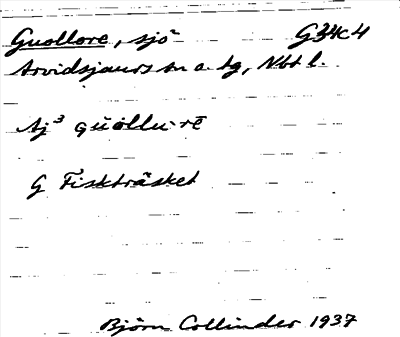 Guollore, sjö G34c4
Arvidsjaurs sn o. tg, Nbt l.
Aj³ guollu-rē
G Fiskträsket
Björn Collinder 1937